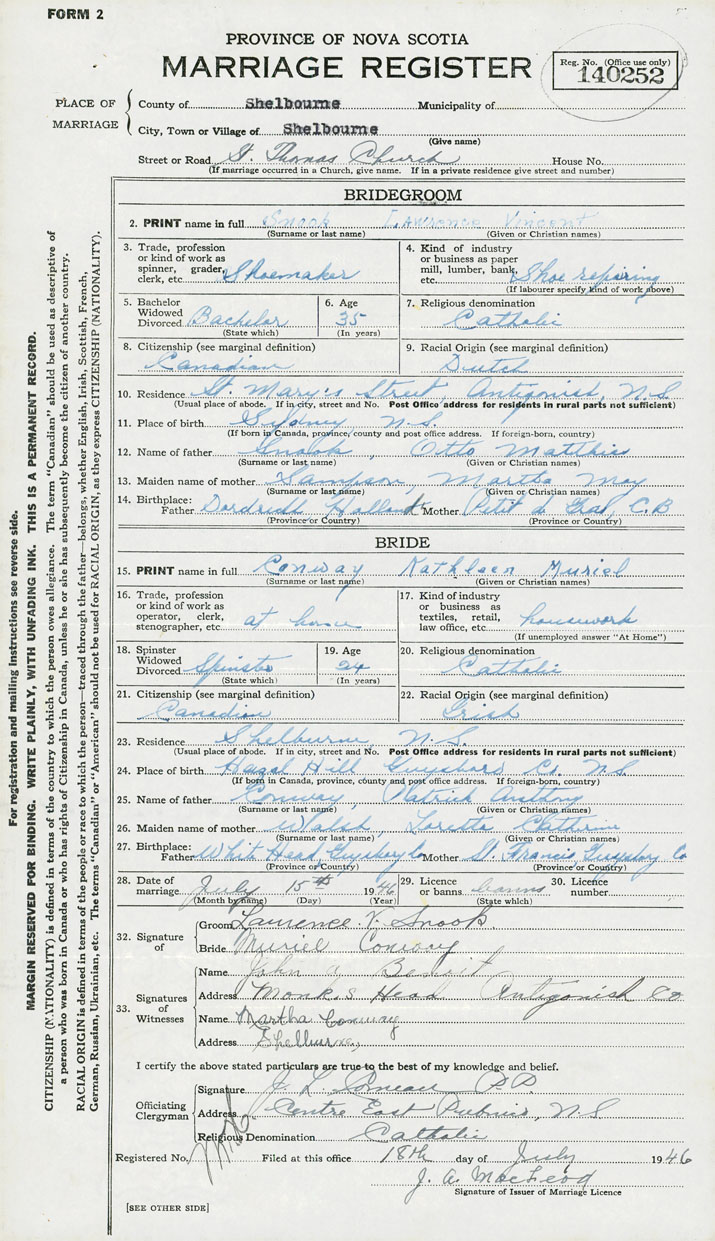 FORM 2
PROVINCE OF NOVA SCOTIA
MARRIAGE REGISTER
Reg. No. (Office use only)
140252
PLACE OF MARRIAGE
County of Shelbourne Municipality of
City, Town or Village of Shelbourne
(Give name)
Street or Road St. Thomas Church House No.
(If marriage occurred in a Church, give name. If in a private residence give street and number)
BRIDEGROOM
2. PRINT name in full Snook Lawrence Vincent
(Surname or last name) (Given or Christian names)
3. Trade, profession or kind of work as spinner, grader, clerk, etc. Shoemaker
4. Kind of industry or business as paper mill, lumber, bank, etc. Shoe repairing
(If labourer specify kind of work above)
5. Bachelor Widowed Divorced Bachelor
(State which)
6. Age 35
(In years)
7. Religious denomination
Catholic
8. Citizenship (see marginal definition)
Canadian
9. Racial Origin (see marginal definition)
Dutch
10. Residence St. Mary's Street Antigonish, N.S.
(Usual place of abode. If in city, street and No. Post Office address for residents in rural parts not sufficient)
11. Place of birth Sydney N.S.
(If born in Canada, province, county and post office address. If foreign-born, country)
12. Name of father Snook, Otto Matthies
(Surname or last name) (Given or Christian names)
13. Maiden name of mother Sampson, Martha May
(Surname or last name) (Given or Christian names)
14. Birthplace:
Father Dordrecht Holland Mother Petit de Gras, C.B
(Province or Country) (Province or Country)
BRIDE
15. PRINT name in full Conway Kathleen Muriel
(Surname or last name) (Given or Christian names)
16. Trade, profession or kind of work as operator, clerk, stenographer, etc. at home
17. Kind of industry or business as textiles, retail, law office, etc. housework
(If unemployed answer "At Home")
18. Spinster Widowed Divorced Spinster
(State which)
19. Age 24
(In years)
20. Religious denomination
Catholic
21. Citizenship (see marginal definition)
Canadian
22. Racial Origin (see marginal definition)
Irish
23. Residence Shelburne, N.S.
(Usual place of abode. If in city, street and No. Post Office address for residents in rural parts not sufficient)
24. Place of birth Hazel Hill Guysboro Co. N.S.
(If born in Canada, province, county and post office address. If foreign-born, country)
25. Name of father Conway, Patrick Anthony
(Surname or last name) (Given or Christian names)
26. Maiden name of mother Walsh, Loretta Catherine
(Surname or last name) (Given or Christian names)
27. Birthplace:
Father White Head, Guysboro Co Mother St. Francis, Guysboro Co
(Province or Country) (Province or Country)
28. Date of marriage. July 15th 1946
(Month by name) (Day) (Year)
29. Licence or banns banns
(State which)
30. Licence number
32. Signature of
Groom Laurence V. Snook
Bride Muriel Conway
33. Signatures of Witnesses
Name John A Benoit
Address Monks Head Antigonish Co
Name Martha Conway
Address Shelburne,
I certify the above stated particulars are true to the best of my knowledge and belief.
Officiating Clergyman
Signature J. L. Comeau P.P.
Address Centre East Pubnico, N S
Religious Denomination Catholic
Registered No. Filed at this office 18th day of July 1946
J. A. MacLeod
Signature of Issuer of Marriage Licence
[SEE OTHER SIDE]
For registration and mailing instructions see reverse side.
MARGIN RESERVED FOR BINDING. WRITE PLAINLY, WITH UNFADING INK. THIS IS A PERMANENT RECORD.
CITIZENSHIP (NATIONALITY) is defined in terms of the country to which the person owes allegiance. The term "Canadian" should be used as descriptive of
a person who was born in Canada or who has rights of Citizenship in Canada, unless he or she has subsequently become the citizen of another country.
RACIAL ORIGIN is defined in terms of the people or race to which the person—traced through the father—belongs, whether English, Irish, Scottish, French,
German, Russian, Ukrainian, etc. The terms "Canadian" or "American" should not be used for RACIAL ORIGIN, as they express CITIZENSHIP (NATIONALITY).